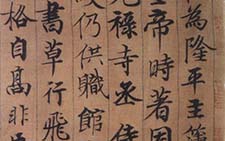 為隆平主簿
帝時著因
祿寺丞
仍供職館
書草行飛
格自高非